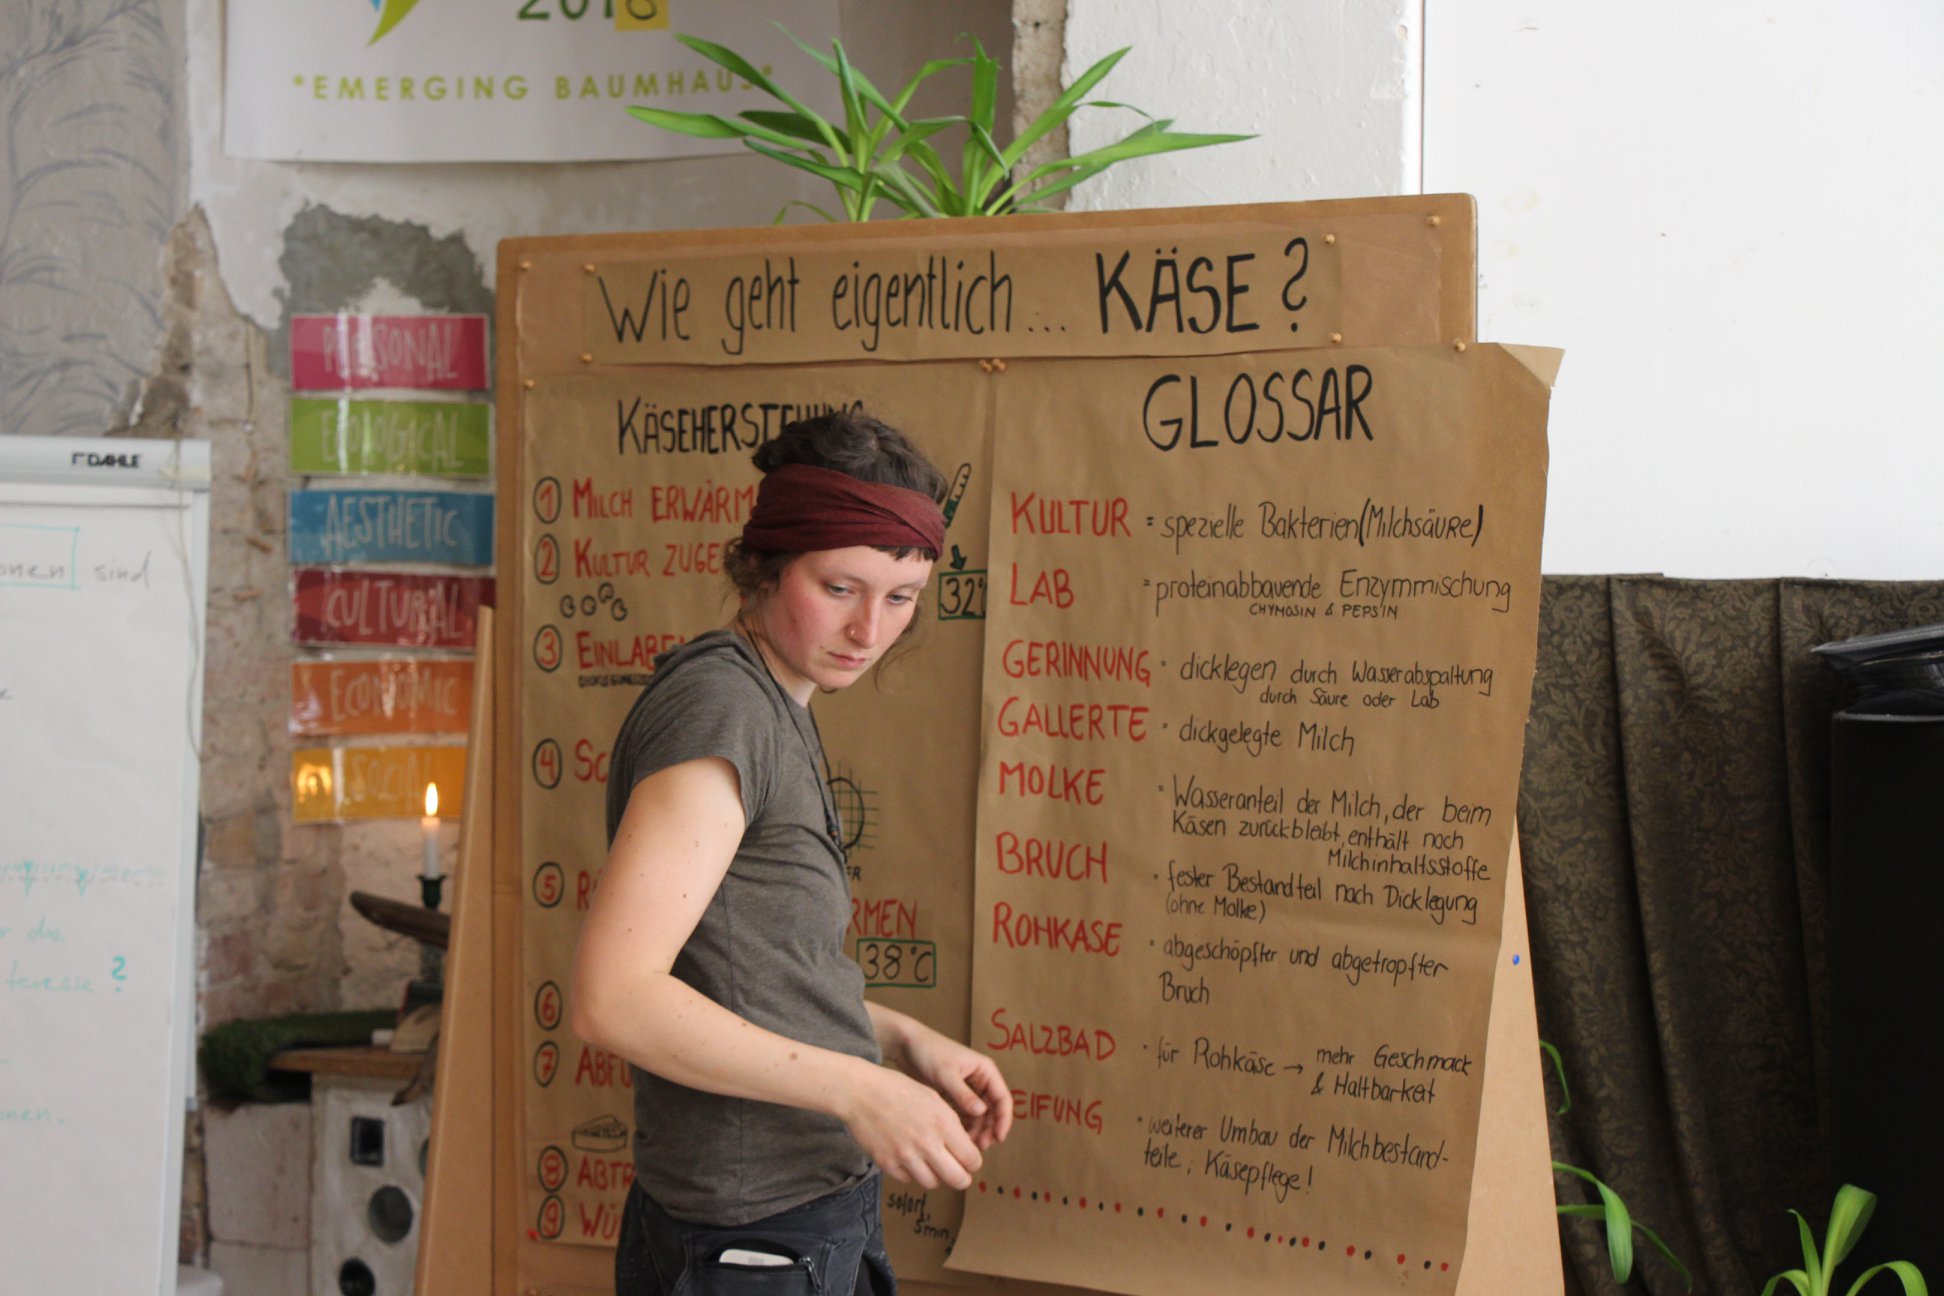 2018
*EMERGING BAUMHAUS*
DAHLE
onen sind
?
PERSONAL
ECOLOGICAL
AESTHETIC
CULTURAL
ECONOMIC
SOCIAL
Wie geht eigentlich... KÄSE?
KÄSEHERSTELLUNG
1 MILCH ERWÄRM
2 KULTUR ZUGE
32°
3 EINLABE
4 SC
5 R
RMEN
38°C
6
7 ABFÜ
8 ABTR
9 WÜ
sofort,
5min
GLOSSAR
KULTUR = spezielle Bakterien (Milchsäure)
LAB = proteinabbauende Enzymmischung
CHYMOSIN & PEPSIN
GERINNUNG · dicklegen durch Wasserabspaltung
durch Säure oder Lab
GALLERTE · dickgelegte Milch
MOLKE · Wasseranteil der Milch, der beim
Käsen zurückbleibt, enthält noch
Milchinhaltsstoffe
BRUCH · fester Bestandteil nach Dicklegung
(ohne Molke)
ROHKÄSE · abgeschöpfter und abgetropfter
Bruch
SALZBAD · für Rohkäse → mehr Geschmack
& Haltbarkeit
EIFUNG · weiterer Umbau der Milchbestand-
teile; Käsepflege!